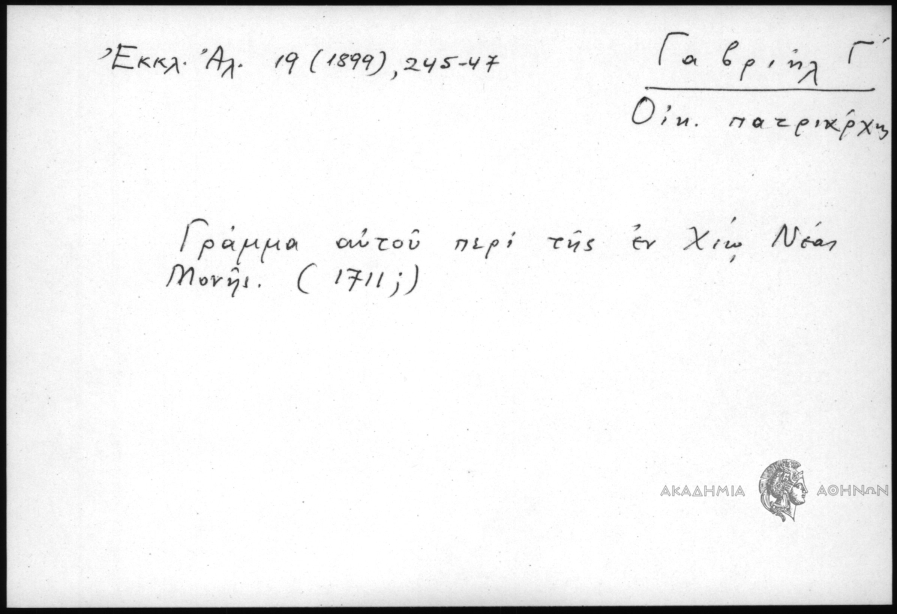 Ἐκκλ. Ἀλ. 19 (1899), 245-47
Γαβριὴλ Γ΄
Οἰκ. πατριάρχης
Γράμμα αὐτοῦ περὶ τῆς ἐν Χίῳ Νέας
Μονῆς. (1711;)
ΑΚΑΔΗΜΙΑ ΑΘΗΝΩΝ